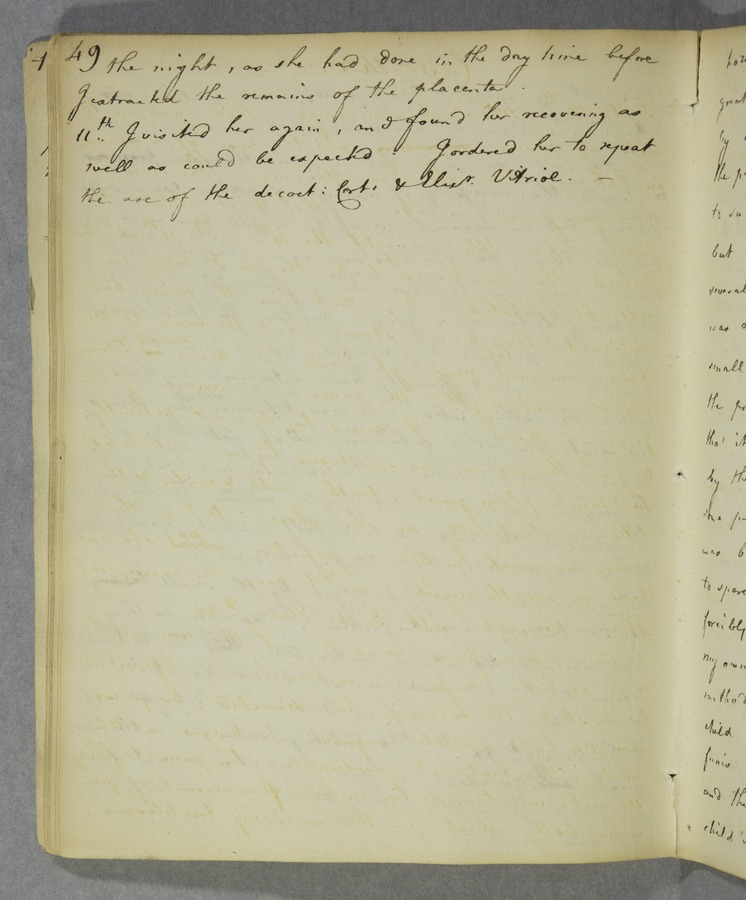 49 the night, as she had done in the day time before
I extracted the remains of the placenta.
11.th I visited her again, and found her recovering as
well as could be expected. I ordered her to repeat
the use of the decoct: Cort. & Elixr. Vitriol. —
great
by
the
but
several
was
small
the
tho' it
by the
was
to spare
forcibly
my own
method
child
funis
and the
child's